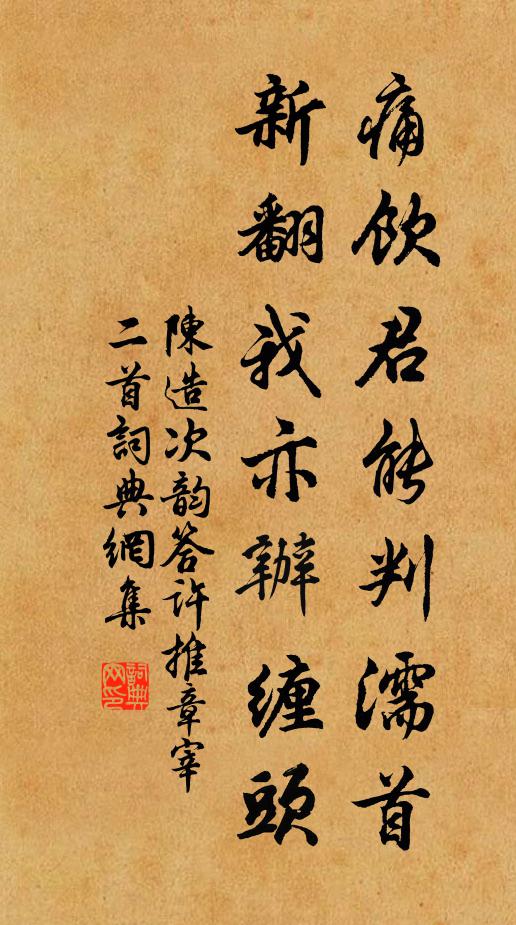 痛飲君能判濡首
新翻我亦辦纏頭
陳造次韵答許推章宰
二首詞典網集
詞典网印